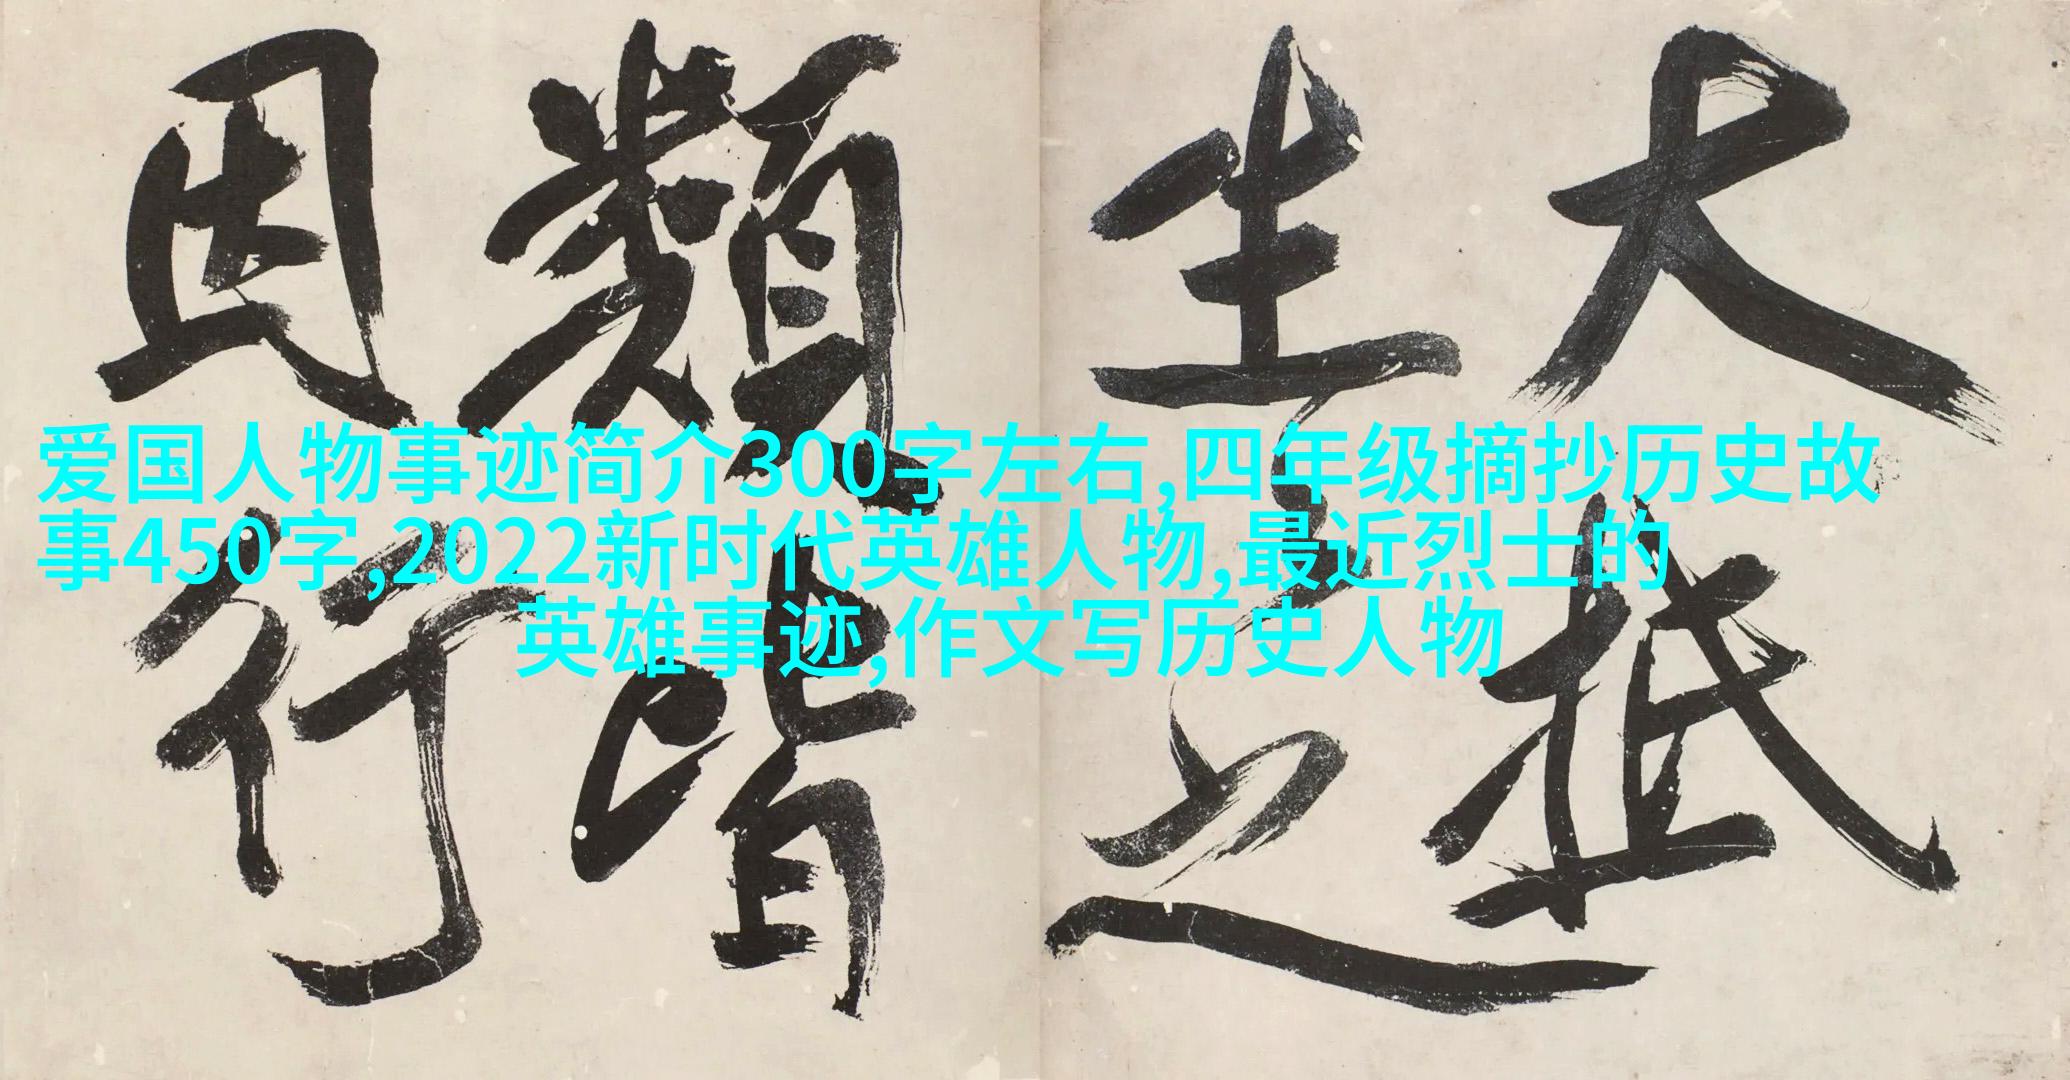 大抵
生之
類皆
因行
爱国人物事迹简介300字左右,四年级摘抄历史故
事450字,2022新时代英雄人物,最近烈士的
英雄事迹,作文写历史人物